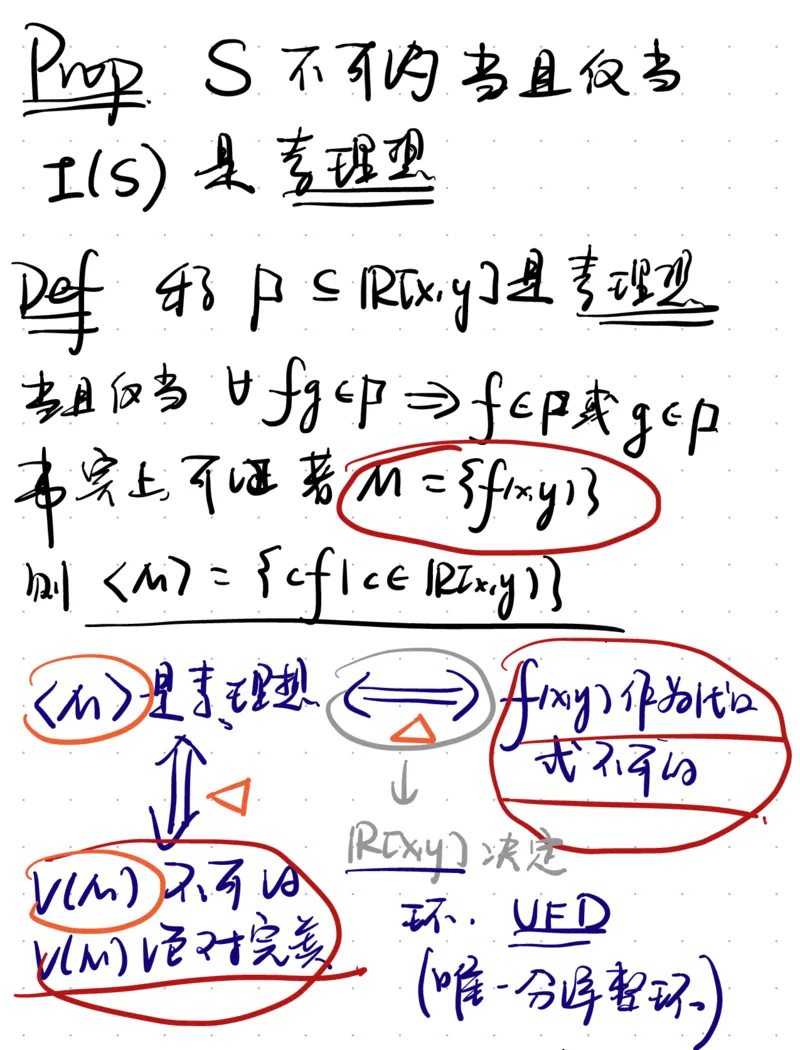 Prop S 不可约 当且仅当
I(S) 是 素理想
Def 称 p ⊆ ℝ[x,y] 是 素理想
当且仅当 ∀ fg∈p ⇒ f∈p 或 g∈p
事实上,可证 若 M = {f(x,y)}
则 <M> = {cf | c∈ℝ[x,y]}
<M> 是素理想 ⟺ f(x,y) 作为代数
△ 式不可约
⇕ △ ↓
V(M) 不可约 ℝ[x,y] 决定
V(M) 完美 环. UFD
(唯一分解整环)